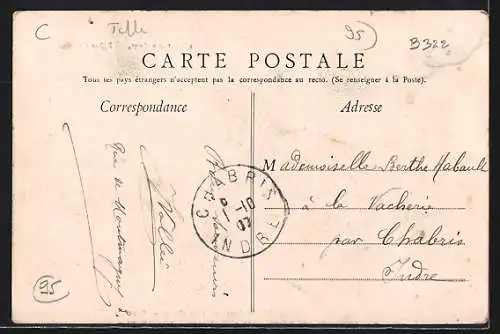 C
95
B322
CARTE POSTALE
Tous les pays étrangers n'acceptent pas la correspondance au recto. (Se renseigner à la Poste).
Correspondance
Adresse
Mademoiselle Berthe Habault
à la Vacherie
par Chabris
Indre
CHABRIS
INDRE
Rue de Montmagny
95